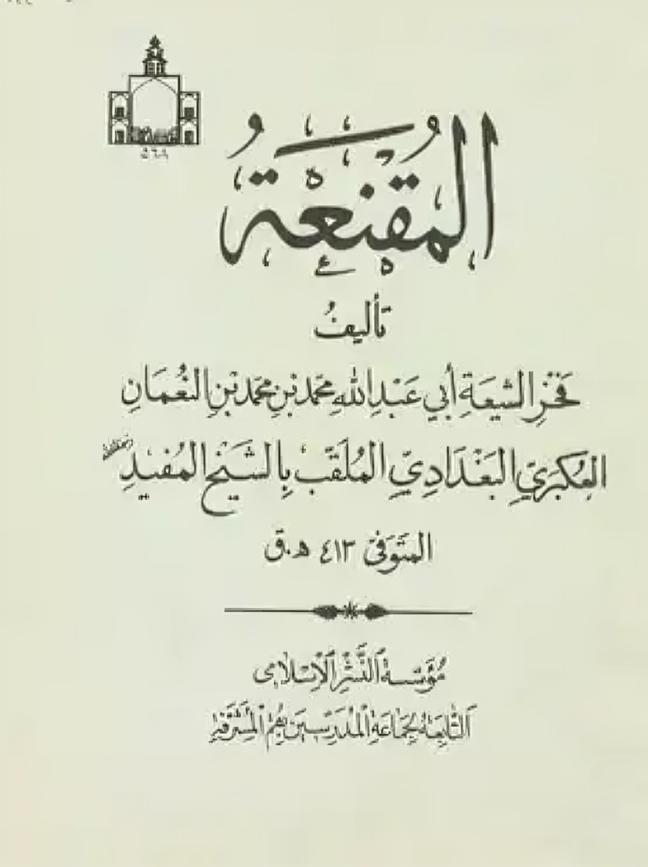 ٥٦٨
المُقْنِعَةُ
تأليفُ
فَخْرِ الشيعَةِ أبي عَبْدِ اللهِ محمّد بْنِ محمّد بْنِ النُعْمَانِ
العُكبَريّ البَغْدَادِيّ المُلَقّبِ بِالشَيْخِ المُفيدِ
المتَوَفّىٰ ٤١٣ هـ.ق
مُؤسّسة النّشر الإسلامي
التّابعة لجماعة المدرّسين بقم المشرّفة